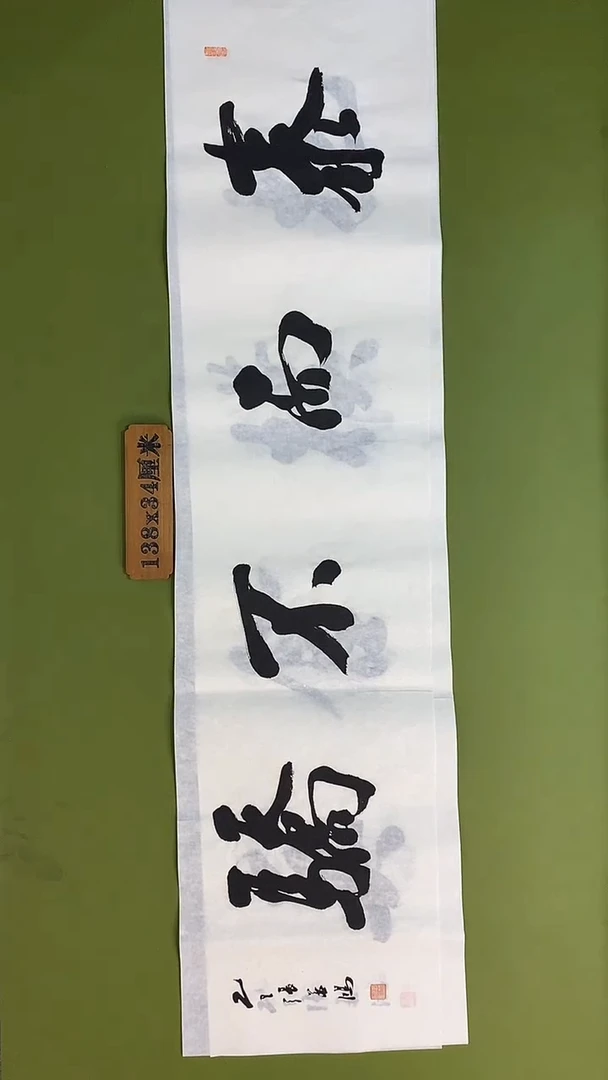 泰而不驕
138x34厘米